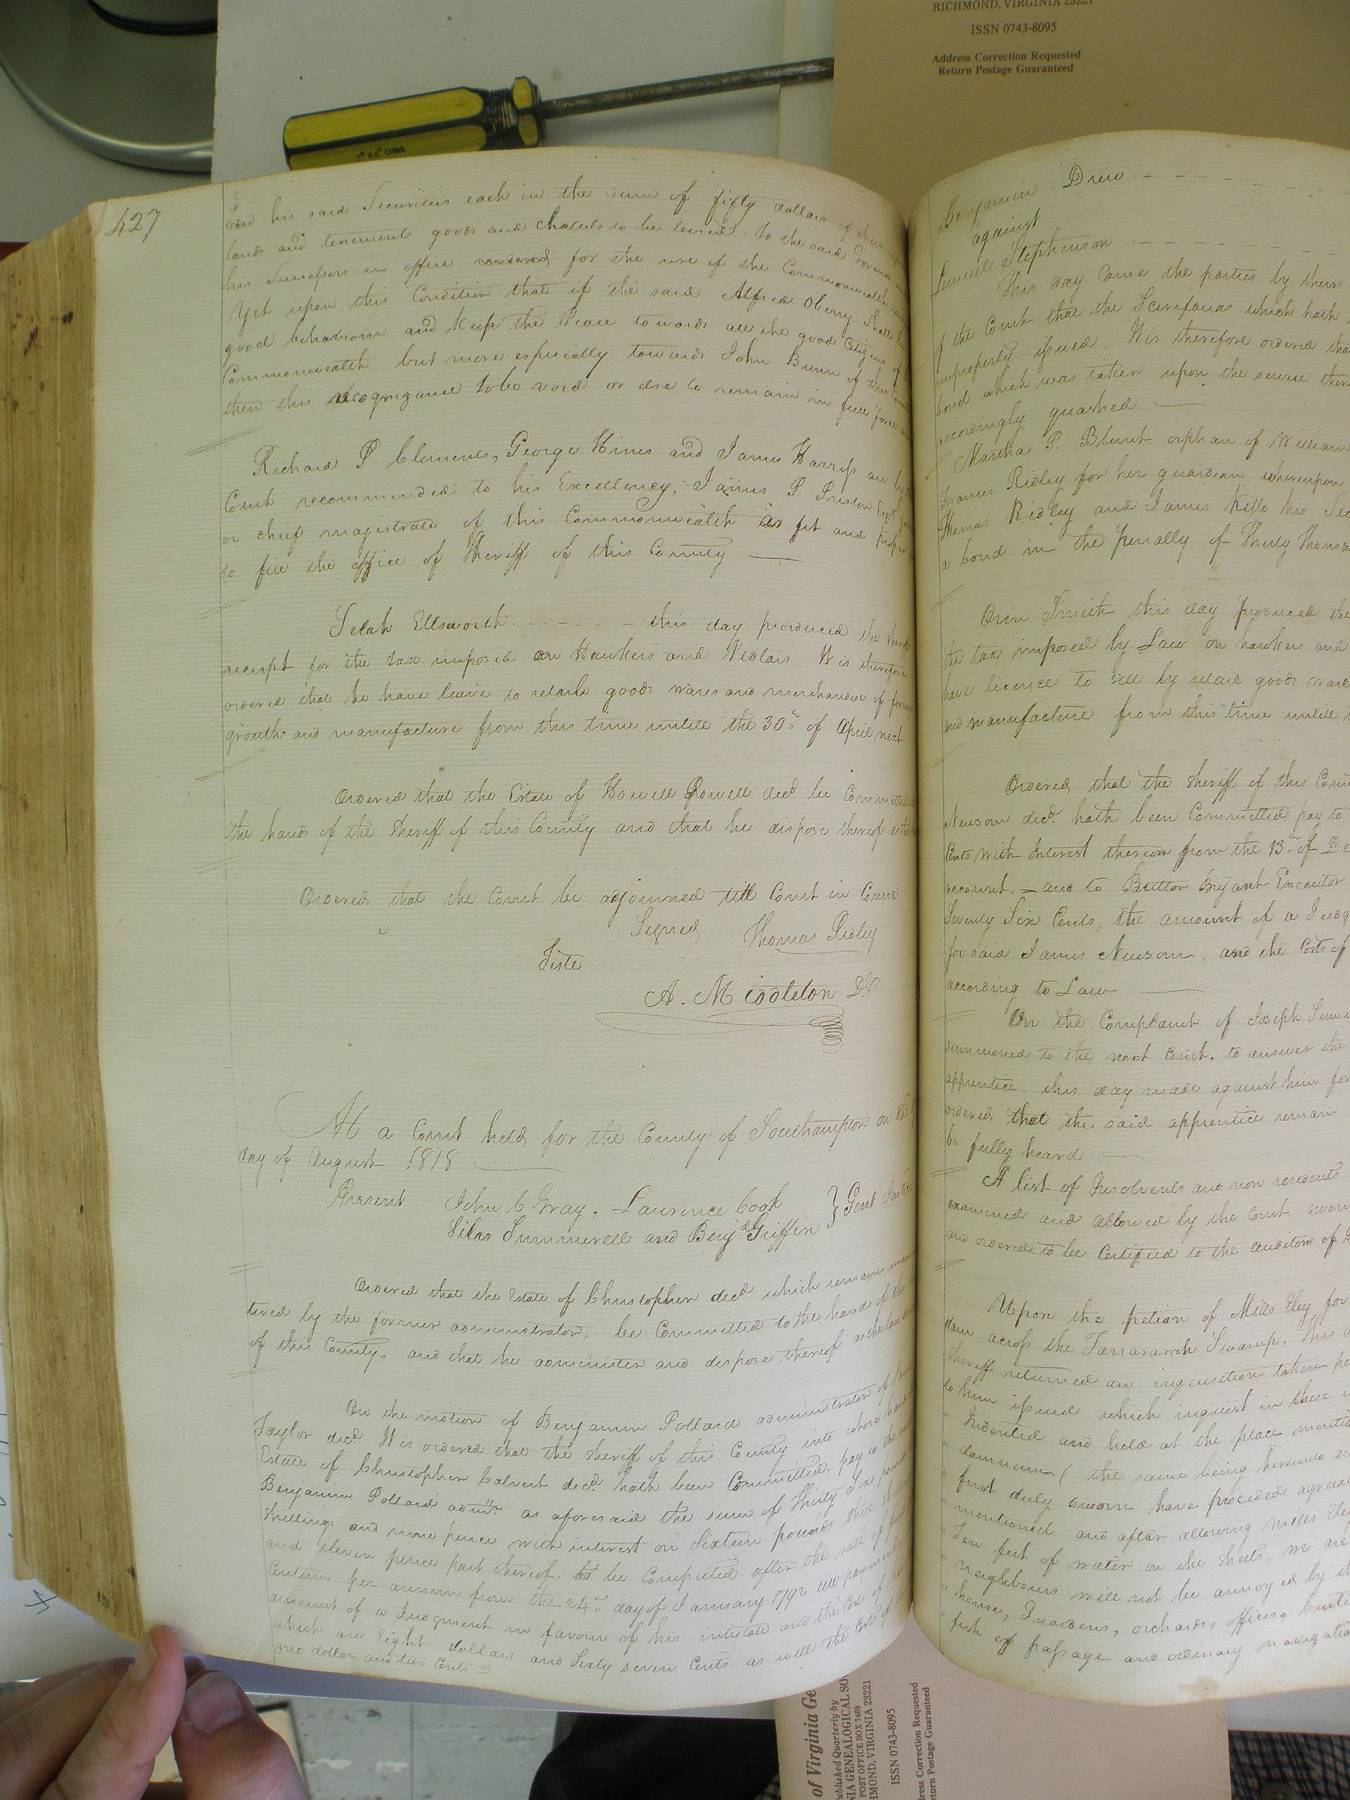 RICHMOND, VIRGINIA 23221
ISSN 0743-8095
Address Correction Requested
Return Postage Guaranteed
427
his said Securities each in the sum of fifty dollars of
lands and tenements goods and chattels to be levied. To the said Governor
his Successors in office rendered for the use of the Commonwealth
Yet upon this Condition that if the said Alfred Oberry Shall
good behaviour and Keep the Peace towards all the good Citizens of
Commonwealth but more especially towards John Bunn of this
then this recognizance to be void or else to remain in full force
Richard P Clements, George Hines and James Harriss are by
Court recommended to his Excellency, James P Preston Esqr
or chief magistrate of this Commonwealth as fit and proper
to fill the office of Sheriff of this County
Selah Ellsworth this day produced the
receipt for the tax imposed on Hawkers and Pedlars. It is therefore
ordered that he have leave to retaile goods wares and merchandise of
growth and manufacture from this time untill the 30th of April next
Ordered that the Estate of Howell Powell decd. be Committed
the hands of the Sheriff of this County and that he dispose thereof
Ordered that the Court be adjourned till Court in Course
Signed Thomas Ridley
Teste
A. Middleton DC
At a Court held for the County of Southampton on the
day of August 1818
Present John C Gray, Laurence Cook
Silas Summerell and Benj. Griffin } Gent
Ordered that the Estate of Christopher decd which remains
tered by the former administrator, be Committed to the hands of the
of this County, and that he administer and dispose thereof
On the motion of Benjamin Pollard administrator of
Taylor decd. It is ordered that the sheriff of this County into whose hands
Estate of Christopher Calvert decd. hath been Committed, pay to the
Benjamin Pollard admr. as aforesaid the sum of thirty Six
Shillings and nine pence with interest on Sixteen pounds
and eleven pence part thereof, to be Computed after the rate of
Centum per annum from the 24th day of January 1792 till payment
amount of a Judgment in favour of his intestate and the Costs of
which are Eight dollars and Sixty seven Cents as well the Costs of
one dollar and two Cents
Benjamin Drew
against
Lemuel Stephenson
This day Came the parties by their
of the Court that the Scirefacias which hath
improperly issued. It is therefore ordered that
bond which was taken upon the service
accordingly quashed
Martha P. Blunt orphan of William
Francis Ridley for her guardian whereupon
Thomas Ridley and James Kello his
a bond in the penalty of Thirty Thousand
Orin Smith this day produced the
the tax imposed by Law on hawkers and
have licence to sell by retail goods
and manufacture from this time untill
Ordered that the Sheriff of this
Newsom decd. hath been Committed pay to
Cents with Interest thereon from the 13th of
account. and to Britton Bryant Executor
Seventy Six Cents, the amount of a
for said James Newsom, and the Costs of
according to Law
On the Complaint of Joseph
summoned to the next Court. to answer the
apprentice this day made against him for
ordered that the said apprentice remain
be fully heard
A list of Insolvents and non residents
examined and allowed by the Court
and ordered to be Certified to the auditor of
Upon the petition of Mills Eley for
dam across the Tarrararah Swamp. This
sheriff returned an inquisition taken
to him issued which inquest in these
" Indented and held at the place
" damnum ( the same being hereunto
" first duly sworn have proceded
" mentioned and after allowing Mills
" Ten feet of water on the sheets, we are
" neighbours will not be annoyed by
" house, Gardens, orchards, offices,
" fish of passage and ordinary navigation
of Virginia Ge
Published Quarterly by
INIA GENEALOGICAL SO
POST OFFICE BOX 7469
HMOND, VIRGINIA 23221
ISSN 0743-8095
dress Correction Requested
eturn Postage Guaranteed